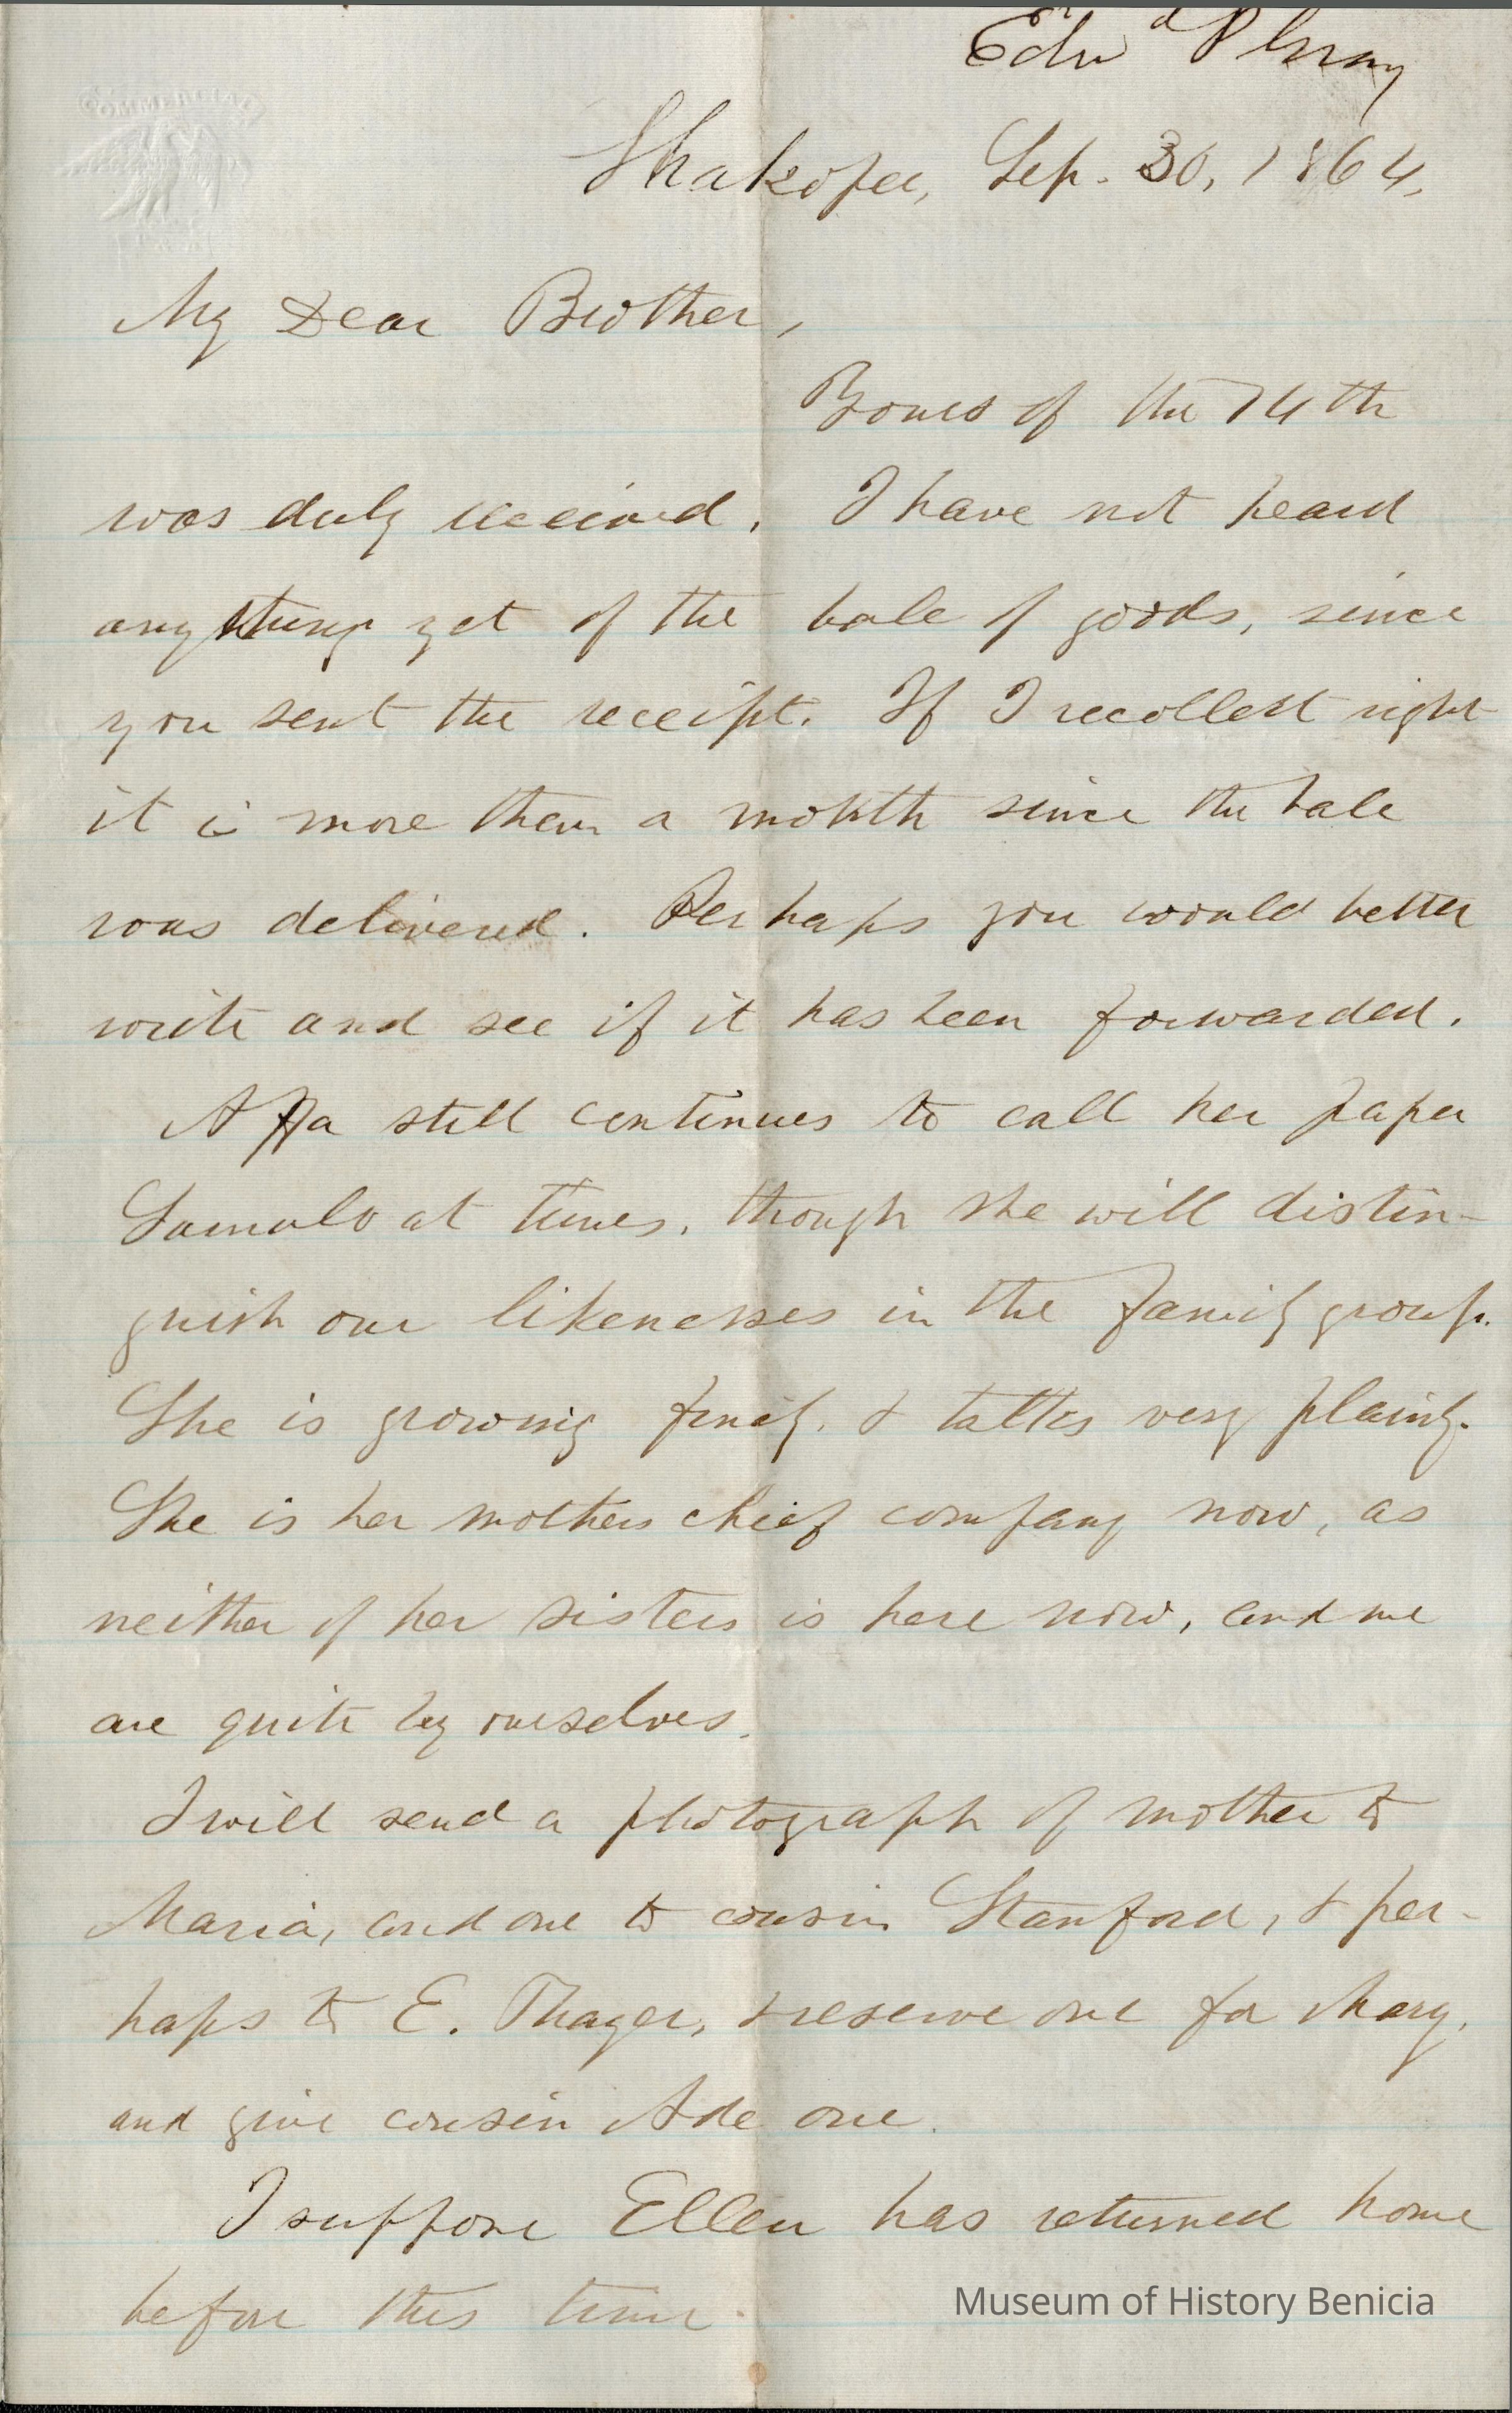 COMMERCIAL
Edwd
Shakopee, Sep. 30, 1864,
My Dear Brother,
Yours of the 14th
was duly received. I have not heard
anything yet of the bale of goods, since
you sent the receipt. If I recollect right
it is more than a month since the bale
was delivered. Perhaps you would better
write and see if it has been forwarded.
still continues to call her papa
at times, though she will distin-
guish our likenesses in the family group.
She is growing finely, & talks very plainly.
She is her mothers chief company now, as
neither of her sisters is here now, and we
are quite by ourselves.
I will send a photograph of mother to
Maria, and one to cousin Stanford, & per-
haps to E. Thayer, & reserve one for Mary,
and give cousin Ade one.
I suppose Ellen has returned home
before this time.
Museum of History Benicia